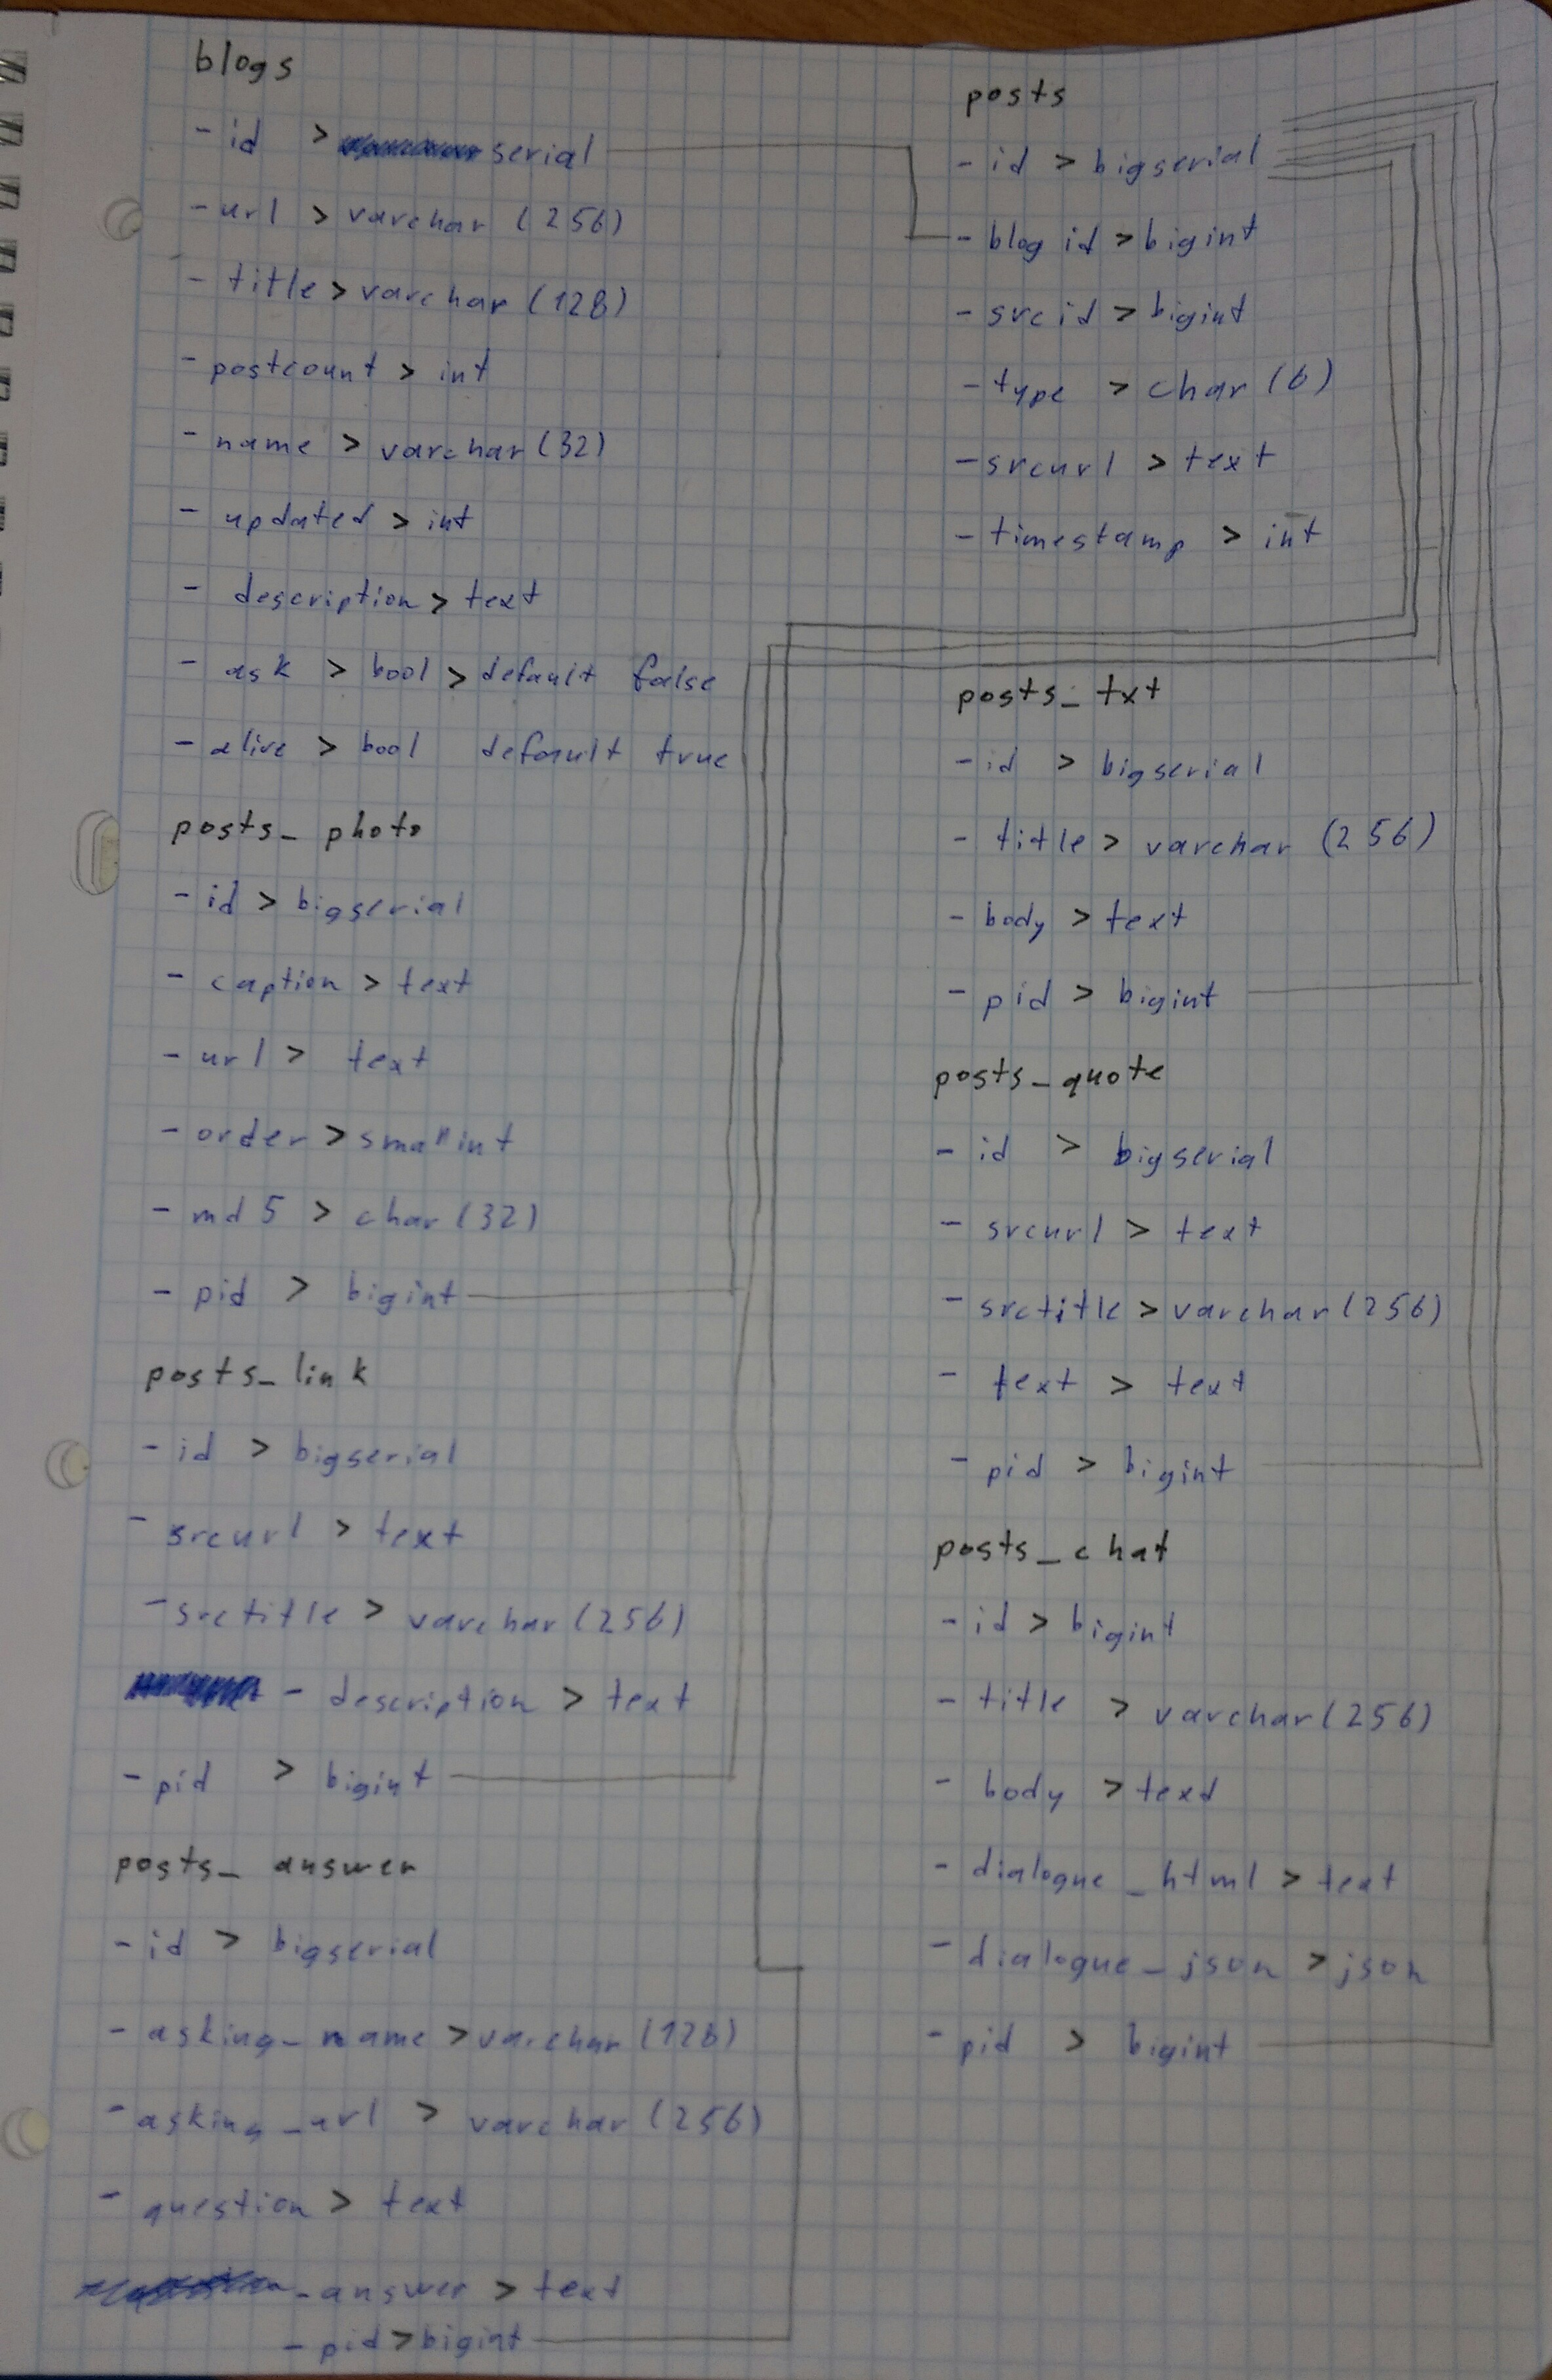 blogs
- id > serial
- url > varchar (256)
- title > varchar (128)
- postcount > int
- name > varchar (32)
- updated > int
- description > text
- ask > bool > default false
- alive > bool default true
posts_ photo
- id > bigserial
- caption > text
- url > text
- order > smallint
- md5 > char (32)
- pid > bigint
posts_ link
- id > bigserial
- srcurl > text
- srctitle > varchar (256)
- description > text
- pid > bigint
posts_ answer
- id > bigserial
- asking_ name > varchar (128)
- asking_url > varchar (256)
- question > text
- answer > text
- pid > bigint
posts
- id > bigserial
- blog id > bigint
- srcid > bigint
- type > char (6)
- srcurl > text
- timestamp > int
posts_ txt
- id > bigserial
- title > varchar (256)
- body > text
- pid > bigint
posts_quote
- id > bigserial
- srcurl > text
- srctitle > varchar (256)
- text > text
- pid > bigint
posts_chat
- id > bigint
- title > varchar (256)
- body > text
- dialogue_html > text
- dialogue_json > json
- pid > bigint